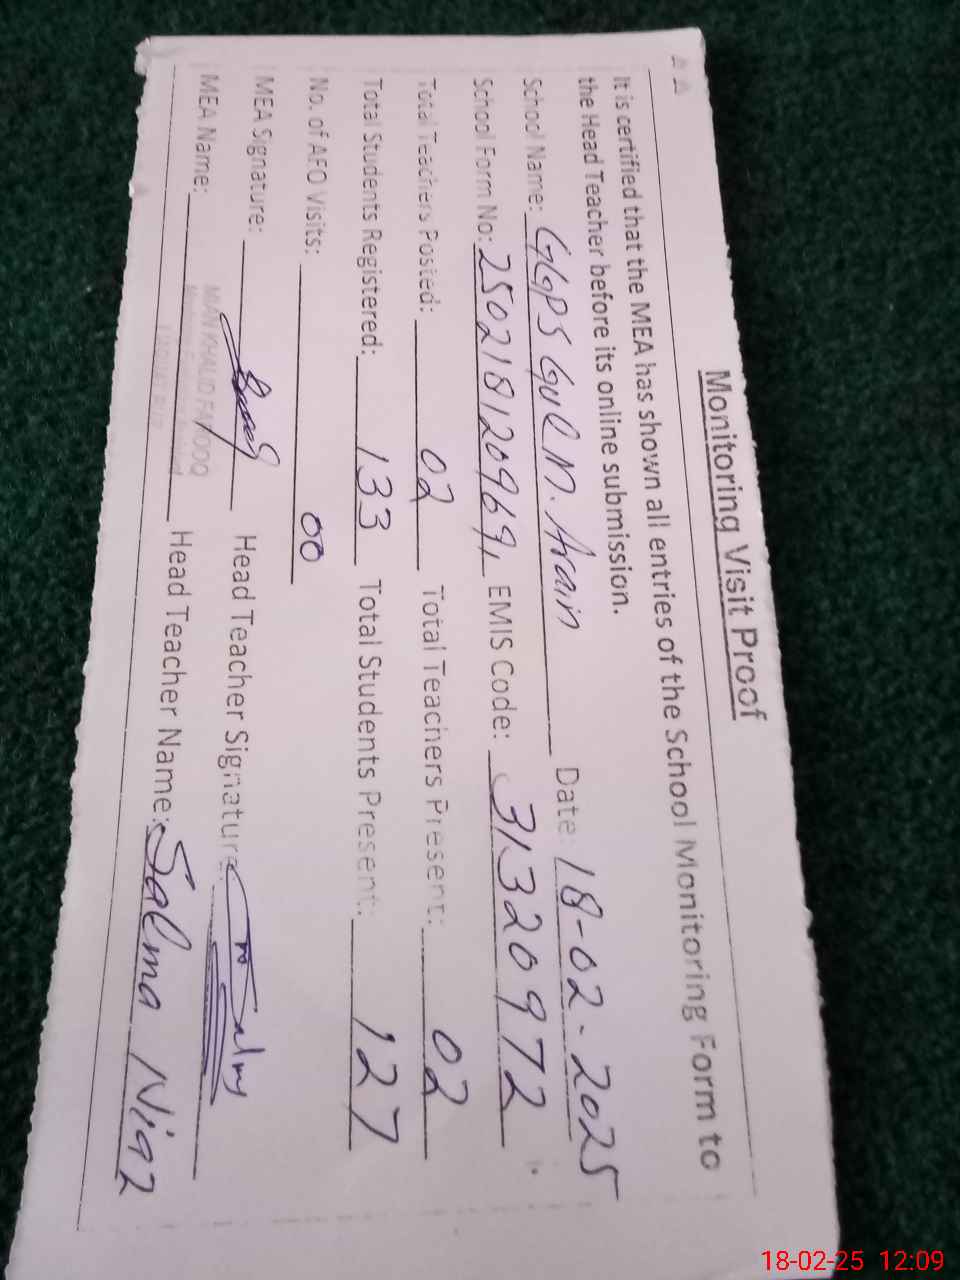 Monitoring Visit Proof
It is certified that the MEA has shown all entries of the School Monitoring Form to
the Head Teacher before its online submission.
School Name: GGPS Gul M. Arain Date: 18-02-2025
School Form No: 2502181209691 EMIS Code: 31320972
Total Teachers Posted: 02 Total Teachers Present: 02
Total Students Registered: 133 Total Students Present: 127
No. of AEO Visits: 00
MEA Signature: Head Teacher Signature:
MEA Name: MIAN KHALID FAROOQ Head Teacher Name: Salma Niaz
18-02-25 12:09